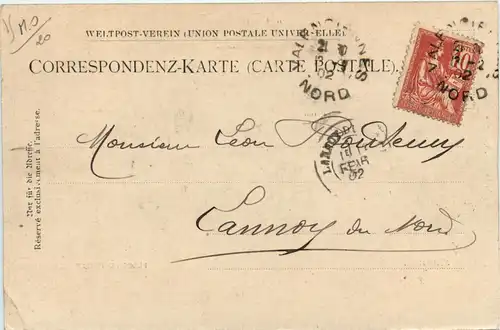 WELTPOST-VEREIN (UNION POSTALE UNIVERSELLE)
CORRESPONDENZ-KARTE (CARTE POSTALE)
VALENCIENNES
02
NORD
VALENCIENNES
NORD
Monsieur Léon
Lannoy du Nord
LANNOY
FEVR
02
Nur für die Adresse.
Réservé exclusivement à l'adresse.